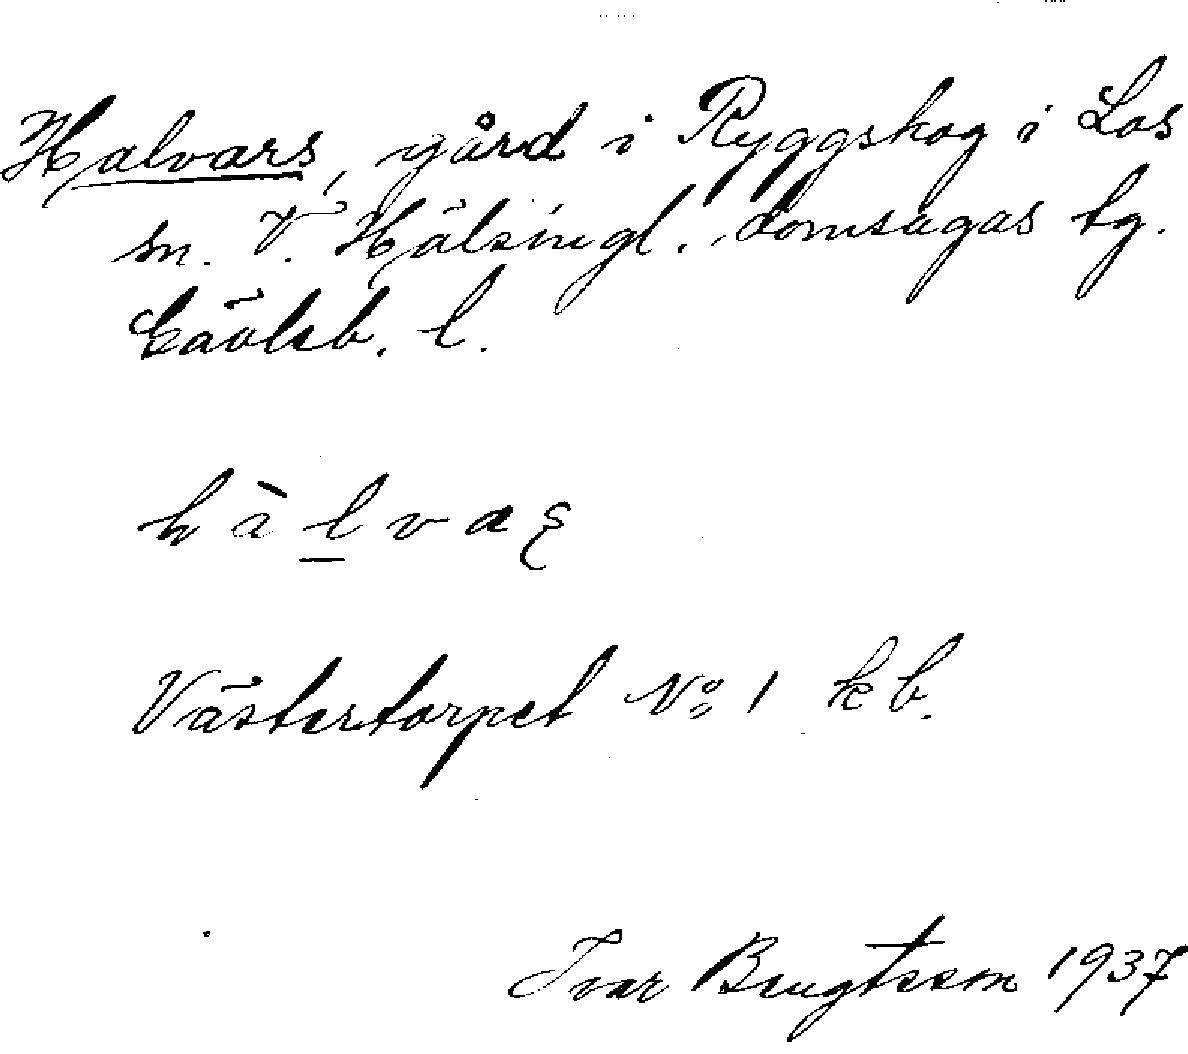 Halvars, gård i Ryggskog i Los
sn. V. Hälsingl. domsagas tg.
Gävleb. l.
hàlvaʂ
Västertorpet No 1 kb.
Ivar Bengtsson 1937